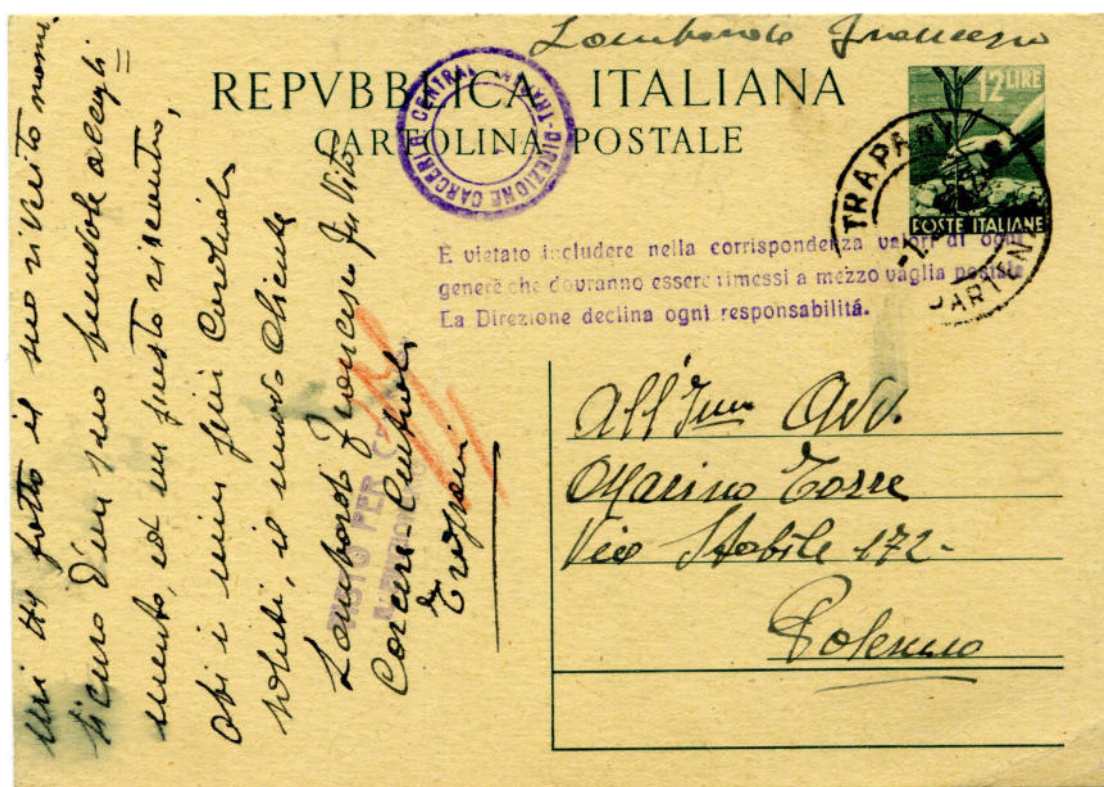 Lombardo Francesco
REPVBBLICA ITALIANA
CARTOLINA POSTALE
12 LIRE
POSTE ITALIANE
TRAPANI
DIREZIONE CARCERI CENTRALI
È vietato includere nella corrispondenza valori di ogni
genere che dovranno essere rimessi a mezzo vaglia postale
La Direzione declina ogni responsabilitá.
All'Ill Avv.
Marino Torre
Via Stabile 172-
Palermo
fatto il suo riverito nome.
sicuro d'un suo
mento, ed un giusto riscontro,
i miei più Cordiali
Saluti, il nuovo Cliente
Lombardo Francesco fu Vito
Carceri-Centrali
Trapani
VISTO PER